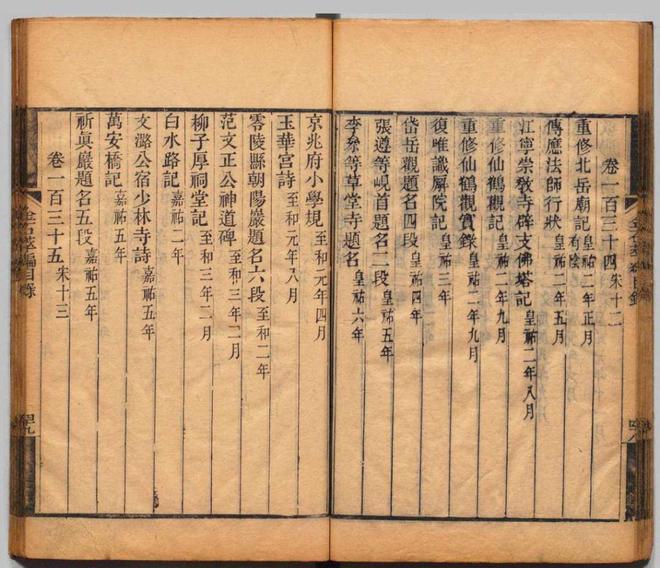 卷一百三十四 宋十二
重修北岳廟記 皇祐二年正月 有陰
傳應法師行狀 皇祐二年五月
江寧崇教寺辟支佛塔記 皇祐二年八月
重修仙鶴觀記 皇祐二年九月
重修仙鶴觀實錄 皇祐二年九月
復唯識廨院記
岱岳觀題名四段 皇祐四年
張遵等峴首題名二段 皇祐五年
李參等草堂寺題名 皇祐六年
京兆府小學規 至和元年四月
玉華宮詩 至和元年八月
零陵縣朝陽巖題名六段 至和二年
范文正公神道碑 至和三年二月
柳子厚祠堂記 至和三年二月
白水路記 嘉祐二年
文潞公宿少林寺詩 嘉祐五年
萬安橋記 嘉祐五年
祈真巖題名五段 嘉祐五年
卷一百三十五 宋十三
金石萃編目錄
四九